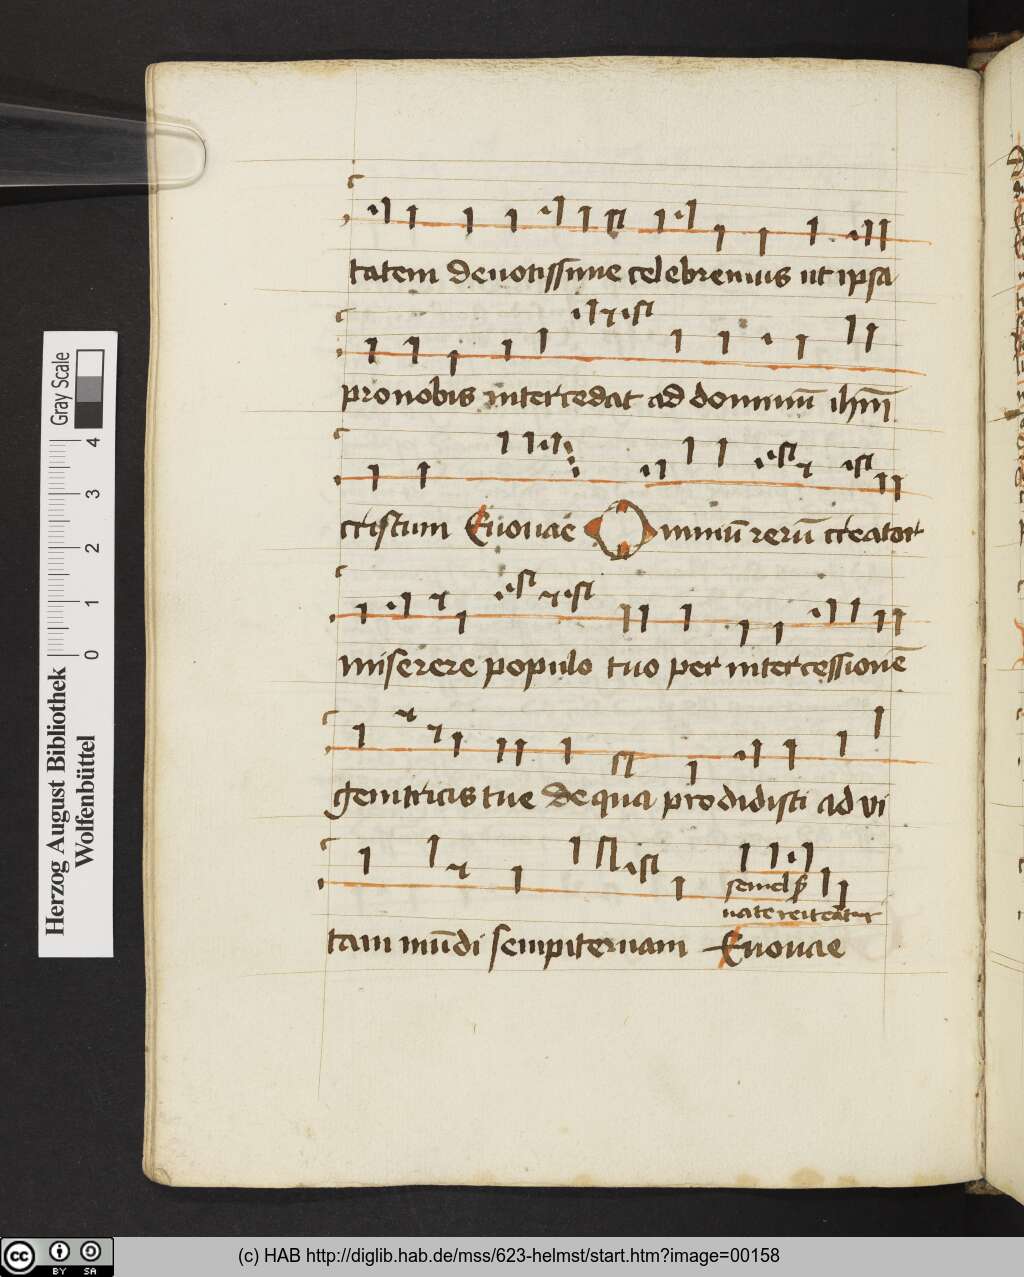 tatem deuotissime celebremus ut ipsa
pro nobis intercedat ad dominū ihm̄
cristum Euouae Omniū rerū creator
miserere populo tuo per intercessionē
genitricis tue de qua prodidisti ad vi
semel
uate reiteatur
tam mūdi sempiternam Euouae
Gray Scale
4
3
2
1
0
Herzog August Bibliothek
Wolfenbüttel
cc BY SA
(c) HAB http://diglib.hab.de/mss/623-helmst/start.htm?image=00158